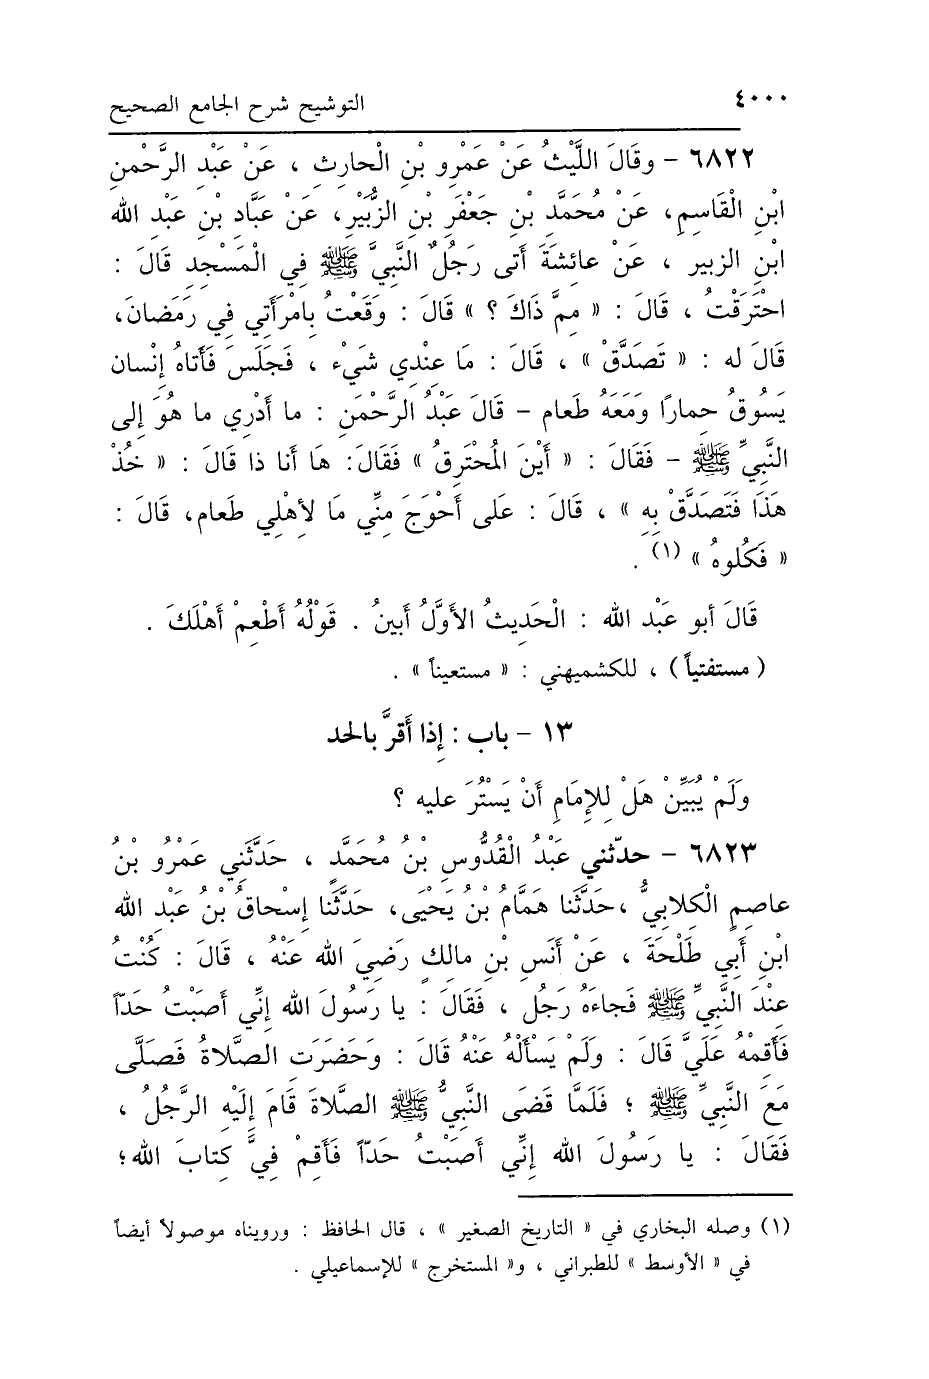 ٤٠٠٠
التوشيح شرح الجامع الصحيح
٦٨٢٢ - وقَالَ اللَّيْثُ عَنْ عَمْرِو بْنِ الْحارِثِ ، عَنْ عَبْدِ الرَّحْمنِ
ابْنِ الْقَاسِمِ، عَنْ مُحَمَّدِ بْنِ جَعْفَرِ بْنِ الزُّبَيْرِ، عَنْ عَبَّادِ بْنِ عَبْدِ الله
ابْنِ الزبير ، عَنْ عائِشَةَ أَتى رَجُلٌ النَّبِيَّ ﷺ فِي الْمَسْجِدِ قَالَ :
احْتَرَقْتُ ، قَالَ : « مِمَّ ذَاكَ ؟ » قَالَ : وَقَعْتُ بِامْرَأَتِي فِي رَمَضانَ،
قَالَ له : « تَصَدَّقْ » ، قَالَ : مَا عِنْدِي شَيْء ، فَجَلَسَ فَأَتاهُ إِنْسان
يَسُوقُ حِمارًا وَمَعَهُ طَعام - قَالَ عَبْدُ الرَّحْمَنِ : ما أَدْرِي ما هُوَ إلى
النَّبِيِّ ﷺ - فَقَالَ : « أَيْنَ الْمُحْتَرِقُ » فَقَالَ: هَا أَنا ذا قَالَ : « خُذْ
هَذَا فَتَصَدَّقْ بِهِ » ، قَالَ : عَلى أَحْوَجَ مِنِّي مَا لأَهْلِي طَعام، قَالَ :
« فَكُلوهُ » (١) .
قَالَ أبو عَبْد الله : الْحَدِيثُ الأَوَّلُ أَبينُ . قَوْلُهُ أَطْعِمْ أَهْلَكَ .
( مستفتياً ) ، للكشميهني : « مستعيناً » .
١٣ - باب : إِذا أَقرَّ بالحد
وَلَمْ يُبَيِّنْ هَلْ لِلإمَامِ أَنْ يَسْتُرَ عليه ؟
٦٨٢٣ - حدّثني عَبْدُ الْقُدُّوسِ بْنُ مُحَمَّدٍ ، حَدَّثَنِي عَمْرُو بْنُ
عاصِمٍ الْكِلابِيُّ ،حَدَّثَنا هَمَّامُ بْنُ يَحْيَى، حَدَّثَنا إِسْحاقُ بْنُ عَبْدِ الله
ابْنِ أَبِي طَلْحَةَ ، عَنْ أَنَسِ بْنِ مالِكٍ رَضِيَ الله عَنْهُ ، قَالَ : كُنْتُ
عِنْدَ النَّبِيِّ ﷺ فَجاءَهُ رَجُل ، فَقَالَ : يا رَسُولَ الله إِنِّي أَصَبْتُ حَدّاً
فَأَقِمْهُ عَلَيَّ قَالَ : وَلَمْ يَسْأَلْهُ عَنْهُ قَالَ : وَحَضَرَتِ الصَّلاةُ فَصَلَّى
مَعَ النَّبِيِّ ﷺ ؛ فَلَمَّا قَضَى النَّبِيُّ ﷺ الصَّلاةَ قَامَ إِلَيْهِ الرَّجُلُ ،
فَقَالَ : يا رَسُولَ الله إِنِّي أَصَبْتُ حَدّاً فَأَقِمْ فِيَّ كِتابَ الله؛
(١) وصله البخاري في « التاريخ الصغير » ، قال الحافظ : ورويناه موصولاً أيضاً
في « الأوسط » للطبراني ، و« المستخرج » للإسماعيلي .